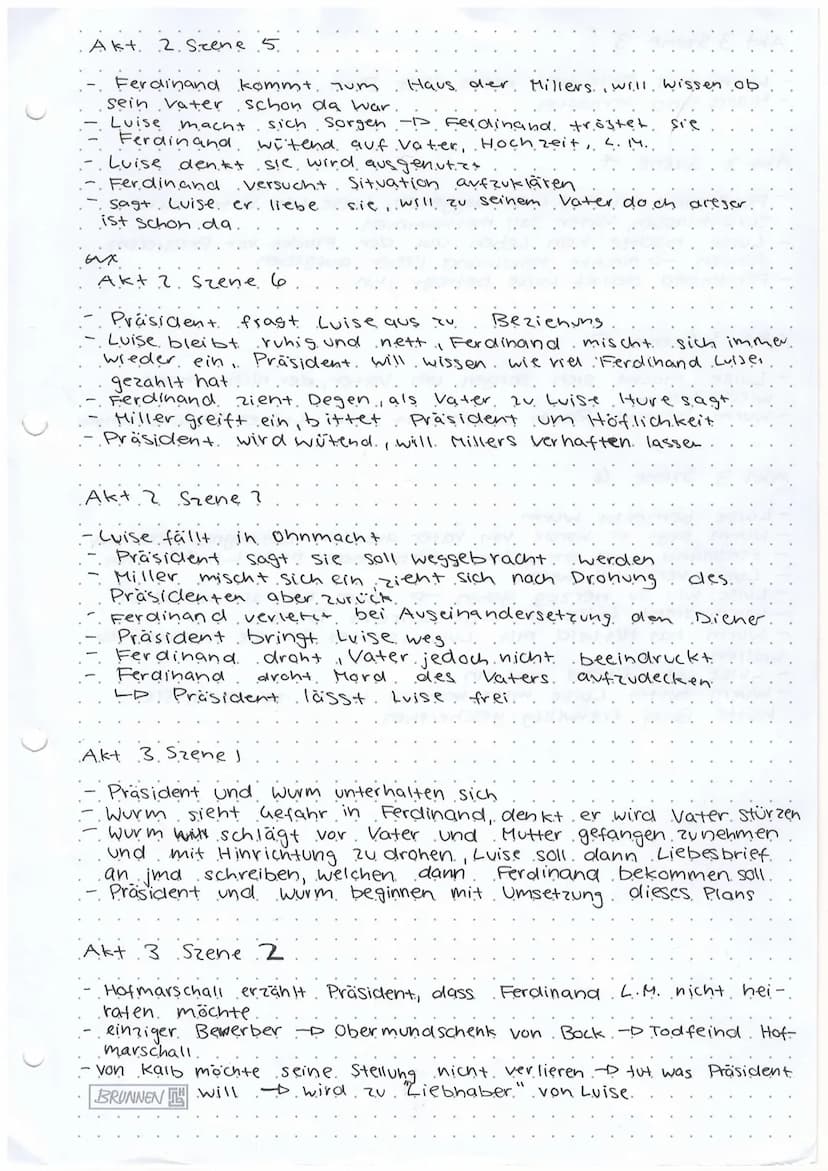 Akt 2 Szene 5
- Ferdinand kommt zum Haus der Millers, will wissen ob
sein Vater schon da war
- Luise macht sich Sorgen → Ferdinand tröstet sie
- Ferdinand wütend auf Vater, Hochzeit, L.M.
- Luise denkt sie wird ausgenutzt
- Ferdinand versucht Situation aufzuklären
- sagt Luise er liebe sie, will zu seinem Vater doch dieser
ist schon da
Akt 2 Szene 6
- Präsident fragt Luise aus zu Beziehung
- Luise bleibt ruhig und nett, Ferdinand mischt sich immer
wieder ein, Präsident will wissen wie viel Ferdinand Luise
gezahlt hat
- Ferdinand zieht Degen, als Vater zu Luise Hure sagt
- Miller greift ein, bittet Präsident um Höflichkeit
- Präsident wird wütend, will Millers verhaften lassen
Akt 2 Szene 7
- Luise fällt in Ohnmacht
- Präsident sagt sie soll weggebracht werden
- Miller mischt sich ein, zieht sich nach Drohung des
Präsidenten aber zurück
- Ferdinand verletzt bei Auseinandersetzung den Diener
- Präsident bringt Luise weg
- Ferdinand droht, Vater jedoch nicht beeindruckt
- Ferdinand droht Mord des Vaters aufzudecken
↳ Präsident lässt Luise frei
Akt 3 Szene 1
- Präsident und Wurm unterhalten sich
- Wurm sieht Gefahr in Ferdinand, denkt er wird Vater stürzen
- Wurm schlägt vor Vater und Mutter gefangen zu nehmen
und mit Hinrichtung zu drohen, Luise soll dann Liebesbrief
an jmd schreiben, welchen dann Ferdinand bekommen soll
- Präsident und Wurm beginnen mit Umsetzung dieses Plans
Akt 3 Szene 2
- Hofmarschall erzählt Präsident, dass Ferdinand L.M. nicht hei-
raten möchte
- einziger Bewerber → Obermundschenk von Bock → Todfeind Hof-
marschall
- von Kalb möchte seine Stellung nicht verlieren → tut was Präsident
BRUNNEN will → wird zu "Liebhaber" von Luise